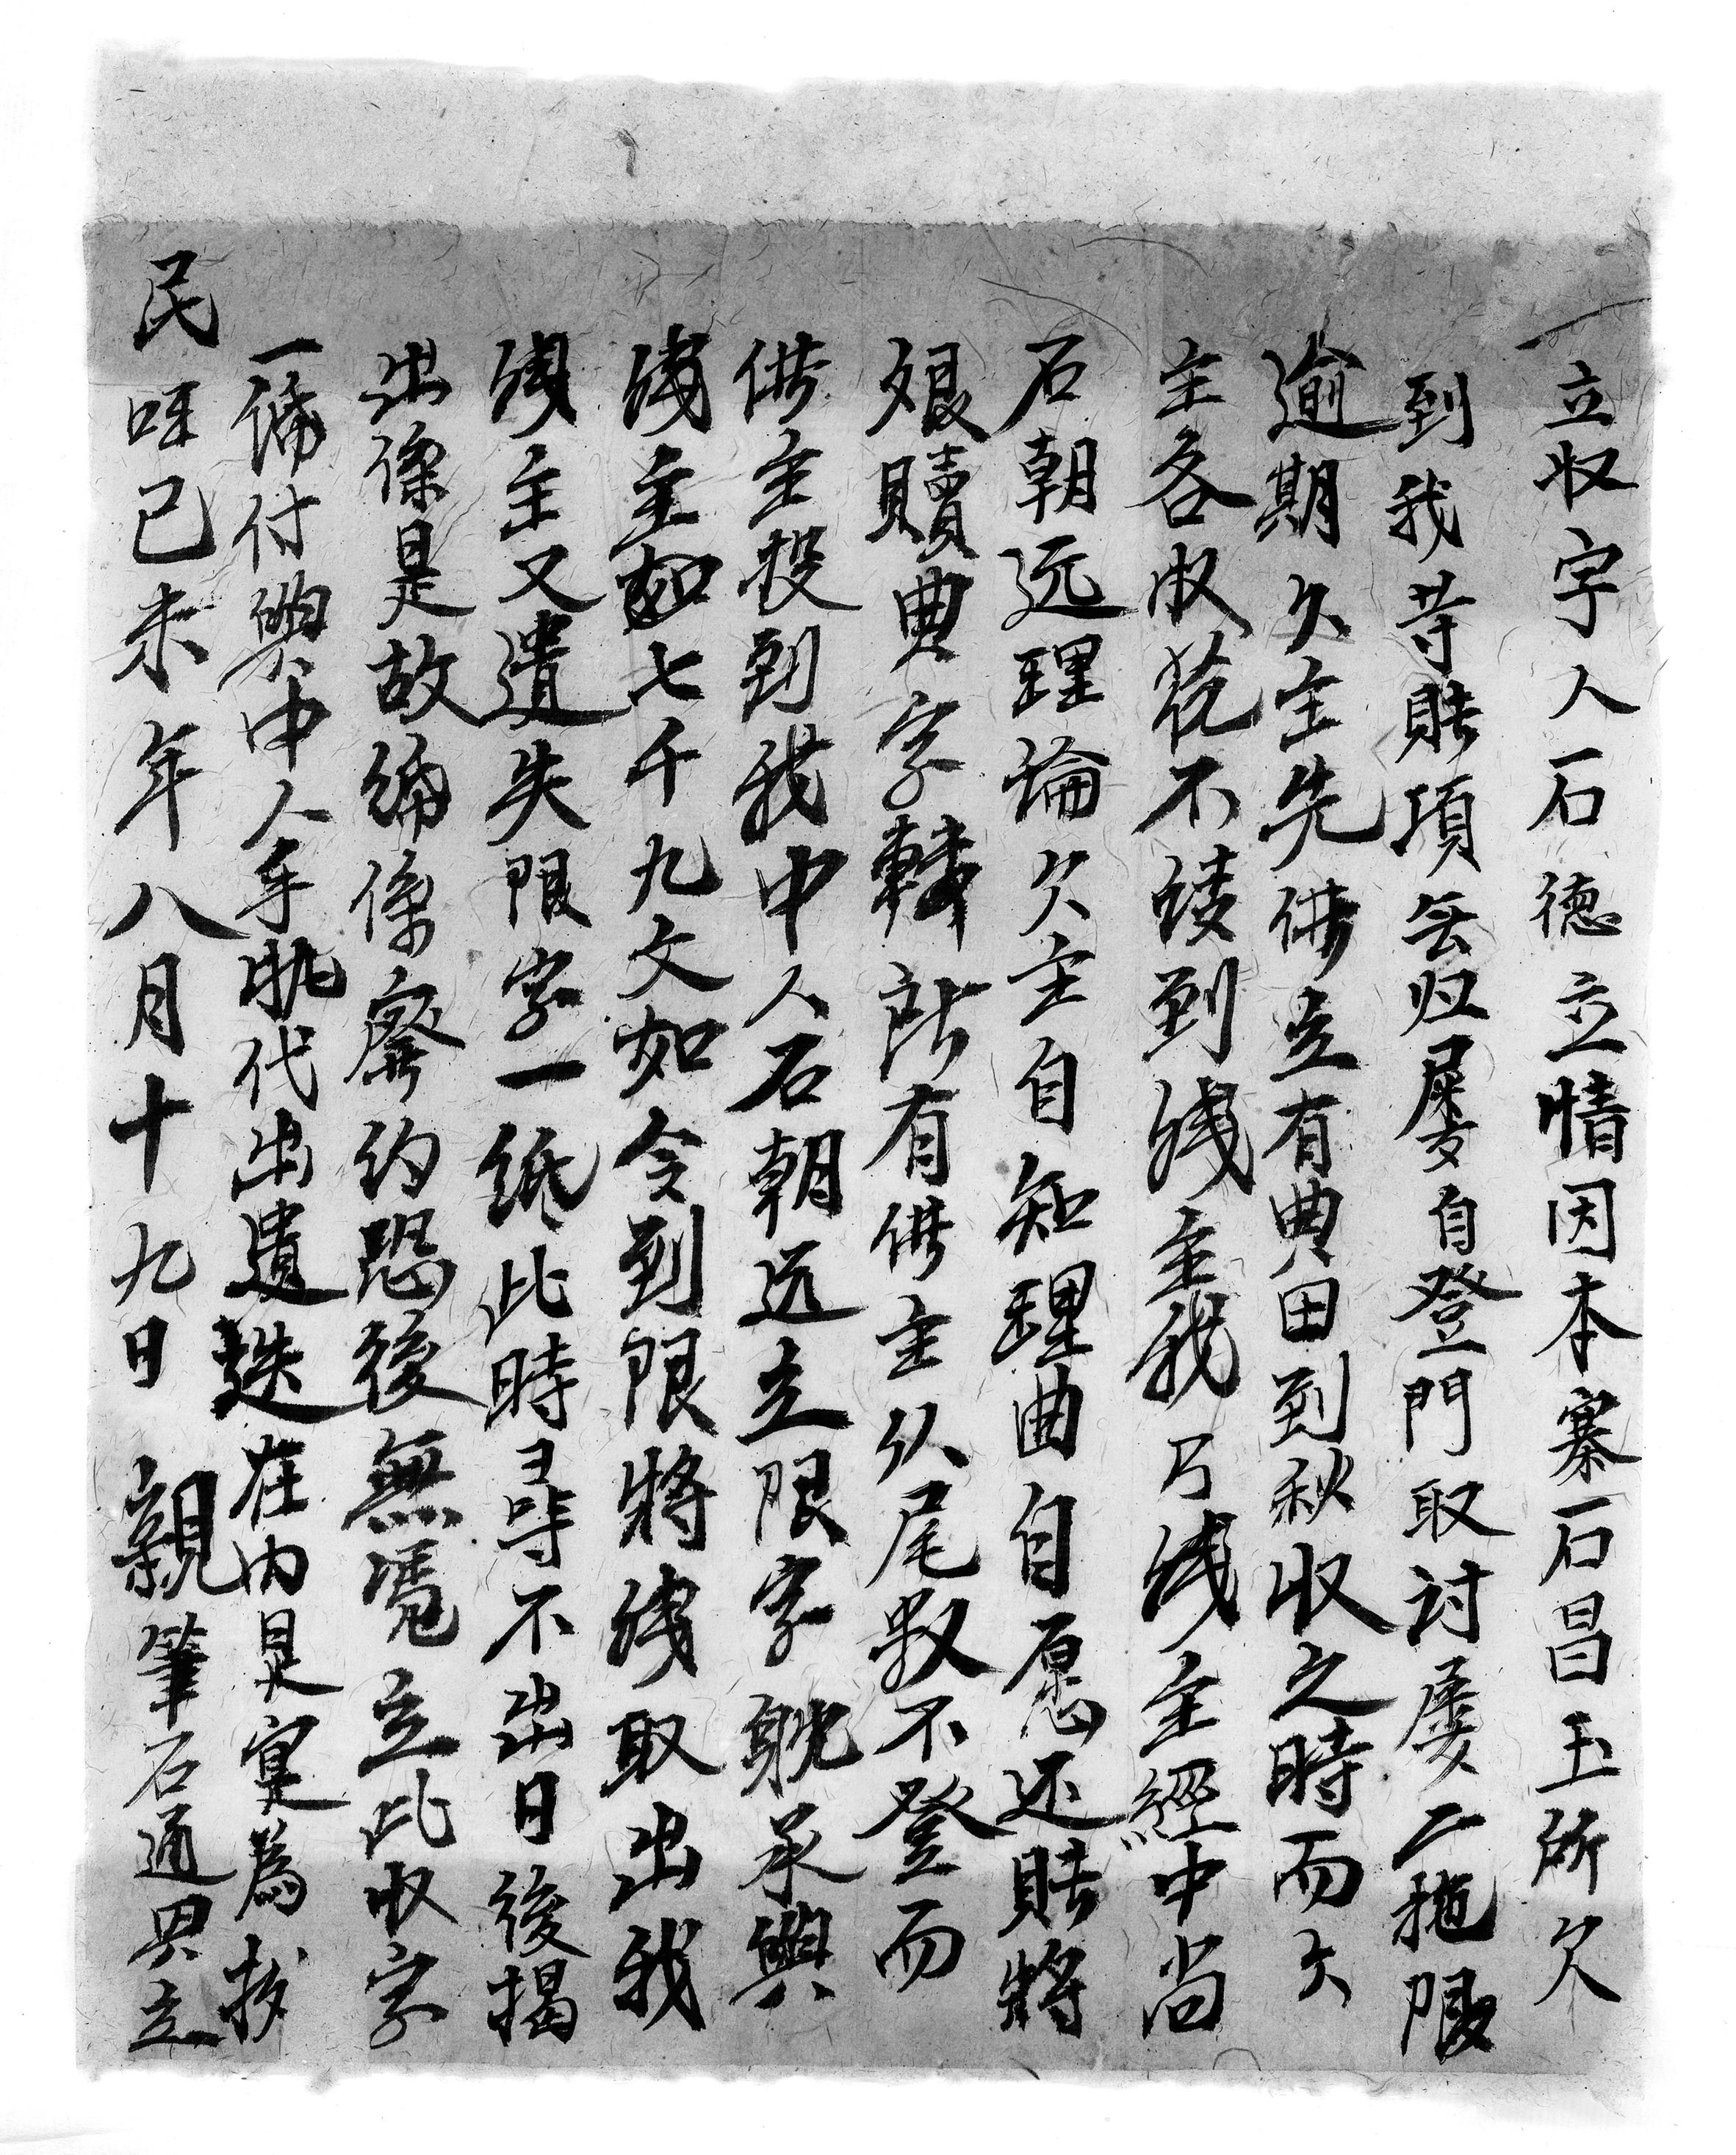 立収字人石德立情因本寨石昌玉所欠
到我等賬項無归屡自登門取討屡二拖限
逾期欠主先借立有典田到秋收之時而欠
主各收花不清到銭主我乃銭主經中尚
石朝远理論欠主自知理曲自愿还賬將
銀贖典字轉所有借主仫尾数不登而
借主投到我中人石朝远立限字躭承與
銭主如七千九文如今到限將銭取出我
銭主又遺失限字一纸此時尋不出日後揭
出係是故紙係廢約恐後無凴立此収字
一紙付與中人手執代出遺迭在内是寔為挍
民囯己未年八月十九日 親筆石通界立